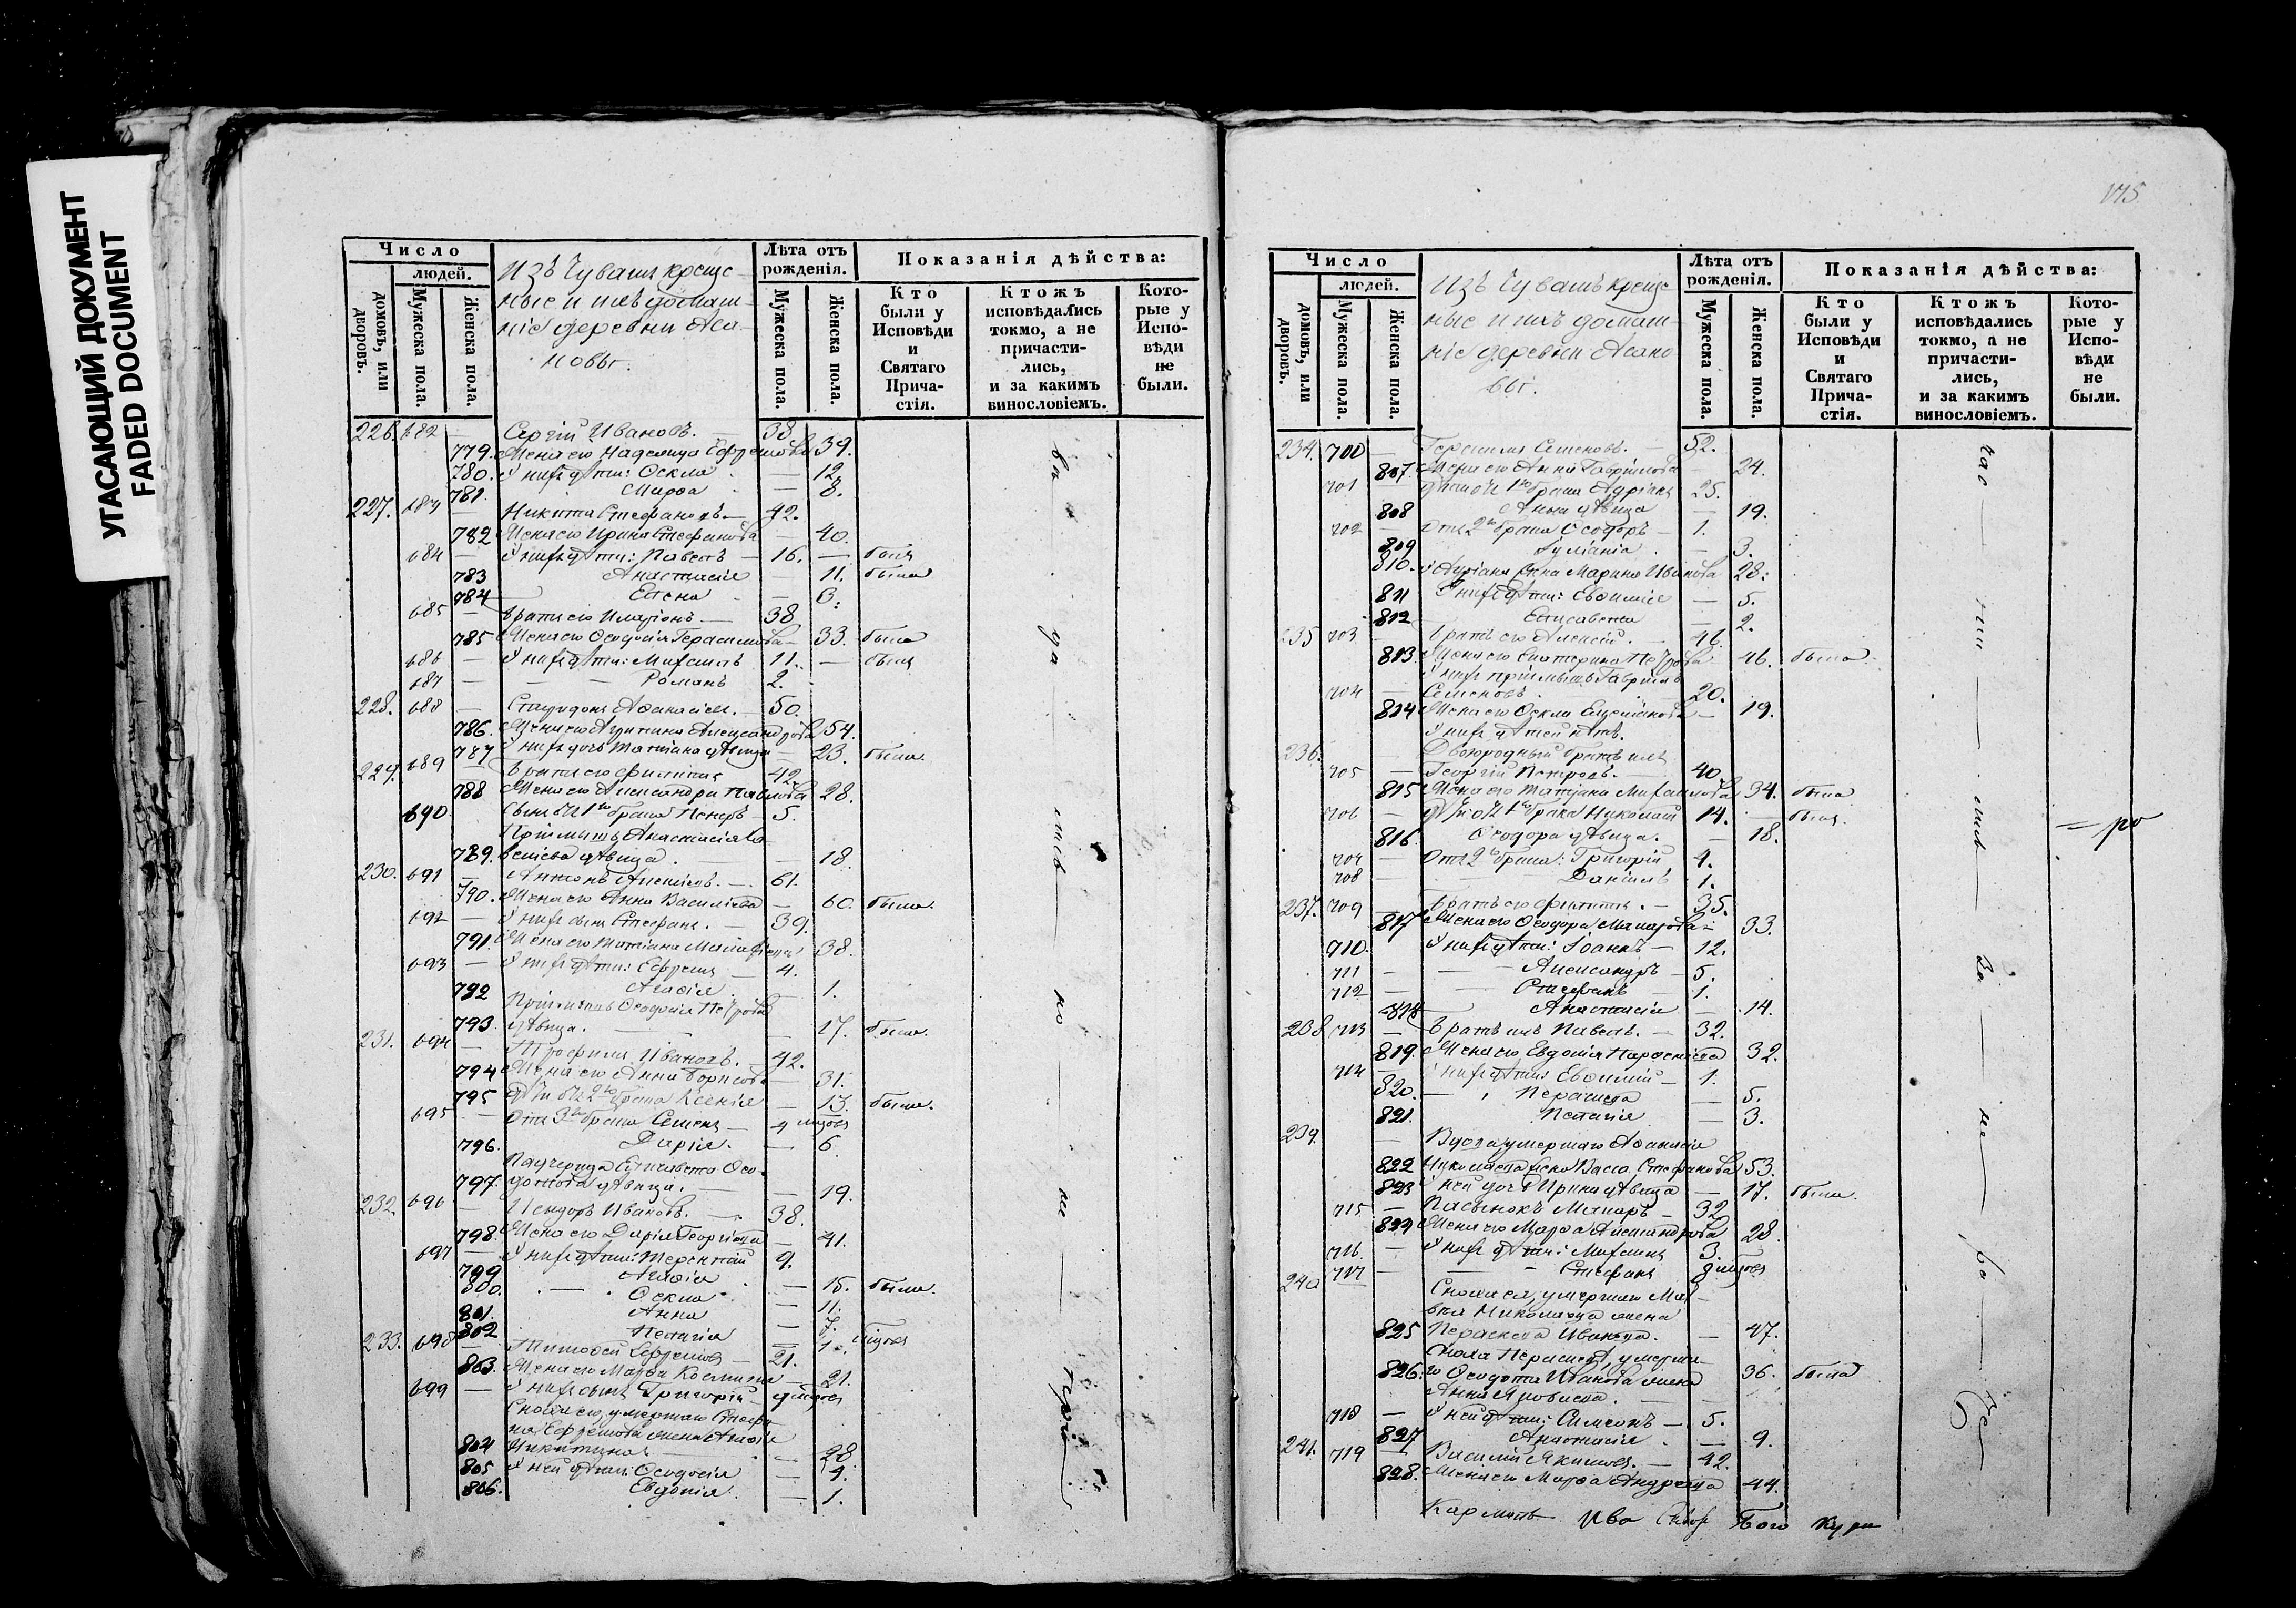 УГАСАЮЩИЙ ДОКУМЕНТ
FADED DOCUMENT
Число
людей.
домовъ, или дворовъ.
Мужеска пола.
Женска пола.
Изъ Чувашъ креще-
ные и ихъ домаш-
ніе деревни Аса-
новы.
Лѣта отъ рожденія.
Мужеска пола.
Женска пола.
Показанія дѣйства:
Кто были у Исповѣди и Святаго Прича-стія.
Ктожъ исповѣдались токмо, а не причасти-лись, и за какимъ винословіемъ.
Кото-рые у Испо-вѣди не были.
226. 682 — Сергій Ивановъ. — 38
779. Жена его Надежда Ефремова 39.
780. У нихъ дѣти: Ѳекла — 12.
781. Марѳа — 8.
227. 683 — Никита Стефановъ. — 42.
782 Жена его Ирина Стефанова — 40.
684 — У нихъ дѣти: Павелъ — 16. — былъ
783 Анастасія — 11. была
784 Елена — 3.
685 — Братъ его Иларіонъ. — 38
785 Жена его Ѳеодосія Герасимова — 33. была
686 — У нихъ дѣти: Михаилъ 11. — былъ
687 — Романъ 2.
228. 688 — Спиридонъ Аѳанасіевъ. — 50.
786. Жена его Агрипина Александрова 54.
787 У нихъ дочь Татіана дѣвица — 23. была.
229. 689 — Братъ его Филиппъ 42.
788 Жена его Александра Павлова 28.
690. Сынъ отъ 1го брака Петръ — 5.
Пріемышъ Анастасія
789. дѣвица. — 18.
230. 691 — Антонъ Алексіевъ. — 61.
790. Жена его Анна Василіева — 60. была.
692 — У нихъ сынъ Стефанъ. — 39.
791. Жена его Татіана 38.
693 — У нихъ дѣти: Ефремъ — 4.
792 Агаѳія — 1.
Пріемышъ Ѳеодосія Петрова
793. дѣвица. — 17. была.
231. 694 — Трофимъ Ивановъ. — 42.
794 Жена его Анна Борисова — 31.
795 Дѣти отъ 2го брака Ксенія — 13. была.
695 — Отъ 3го брака Семенъ — 4 мѣсяцовъ
796. Дарія. — 6
Падчерица Елисавета Ѳео-
797. дотова дѣвица. — 19.
232. 696 — Исидоръ Ивановъ. — 38.
798. Жена его Дарія Георгіева — 41.
697 — У нихъ дѣти: Терентій 9.
799 Агаѳія — 15. была.
800. Ѳекла — 11.
801. Анна — 7.
802 Пелагія — 1
233. 698 — Тимоѳей Ефремовъ — 21.
803. Жена его Марѳа 21.
699 — У нихъ сынъ Григорій
Сноха его, умершаго Стефа-
на Ефремова жена Агаѳія
804 Никитина — 28
805 У ней дѣти: Ѳеодосія — 4.
806. Евдокія. — 1.
175.
Число
людей.
домовъ, или дворовъ.
Мужеска пола.
Женска пола.
Изъ Чувашъ креще-
ные и ихъ домаш-
ніе деревни Асано
вы.
Лѣта отъ рожденія.
Мужеска пола.
Женска пола.
Показанія дѣйства:
Кто были у Исповѣди и Святаго Прича-стія.
Ктожъ исповѣдались токмо, а не причасти-лись, и за какимъ винословіемъ.
Кото-рые у Испо-вѣди не были.
234. 700 — Герасимъ Семеновъ. — 52.
807. Жена его Анна Гавріилова — 24.
701 Дѣти отъ 1го брака Адріанъ 25.
808 Анна дѣвица — 19.
702 — Отъ 2го брака Ѳеодоръ — 1.
809 Іуліанія. — 3.
810. У Адріана жена Марина Иванова 28.
811 У нихъ дѣти: Евѳимія — 5.
812 Елисавета — 2.
235 703 — Братъ его Алексій. — 46
813. Жена его Екатерина Петрова 46. была.
У нихъ пріемышъ Гавріилъ
704 — Семеновъ. 20.
814 Жена его Ѳекла — 19.
У нихъ дѣтей нѣтъ.
236. — Двоюродный братъ ихъ
705 — Георгій Петровъ. — 40
815 Жена его Татіана Михайлова 34. была
706 — Дѣти отъ 1го брака Николай 14. — былъ.
816. Ѳеодора дѣвица. — 18.
707 — Отъ 2го брака: Григорій 4.
708 — Даніилъ 1.
237. 709 — Братъ его Филиппъ. — 35.
817 Жена его Ѳеодора Макарова — 33.
710. У нихъ дѣти: Іоаннъ — 12.
711 — Александръ — 5.
712 — Стефанъ — 1.
818 Анастасія — 14.
238 713 — Братъ ихъ Павелъ. — 32.
819. Жена его Евдокія 32.
714 — У нихъ дѣти: Евѳимій — 1.
820. Параскева — 5.
821. Пелагія — 3.
239. — Вдова умершаго Аѳанасія
822 Николаева жена Васса Стефанова 53.
823 У ней дочь Ирина дѣвица — 17. была.
715 — Пасынокъ Макаръ — 32
824 Жена его Марѳа Александрова 28
716. — У нихъ дѣти: Михаилъ 3.
717 — Стефанъ 8 мѣсяцовъ
240 Сноха ея, умершаго
Николаева жена
825 Параскева Иванова. — 47.
Сноха Параскевы, умерша-
826. го Ѳеодота Иванова жена 36. была
Анна Яковлева. —
718 — У ней дѣти: Симеонъ — 5.
827 Анастасія. — 9.
241. 719 — Василій Якимовъ. — 42.
828. Жена его Марѳа Андреева 44.